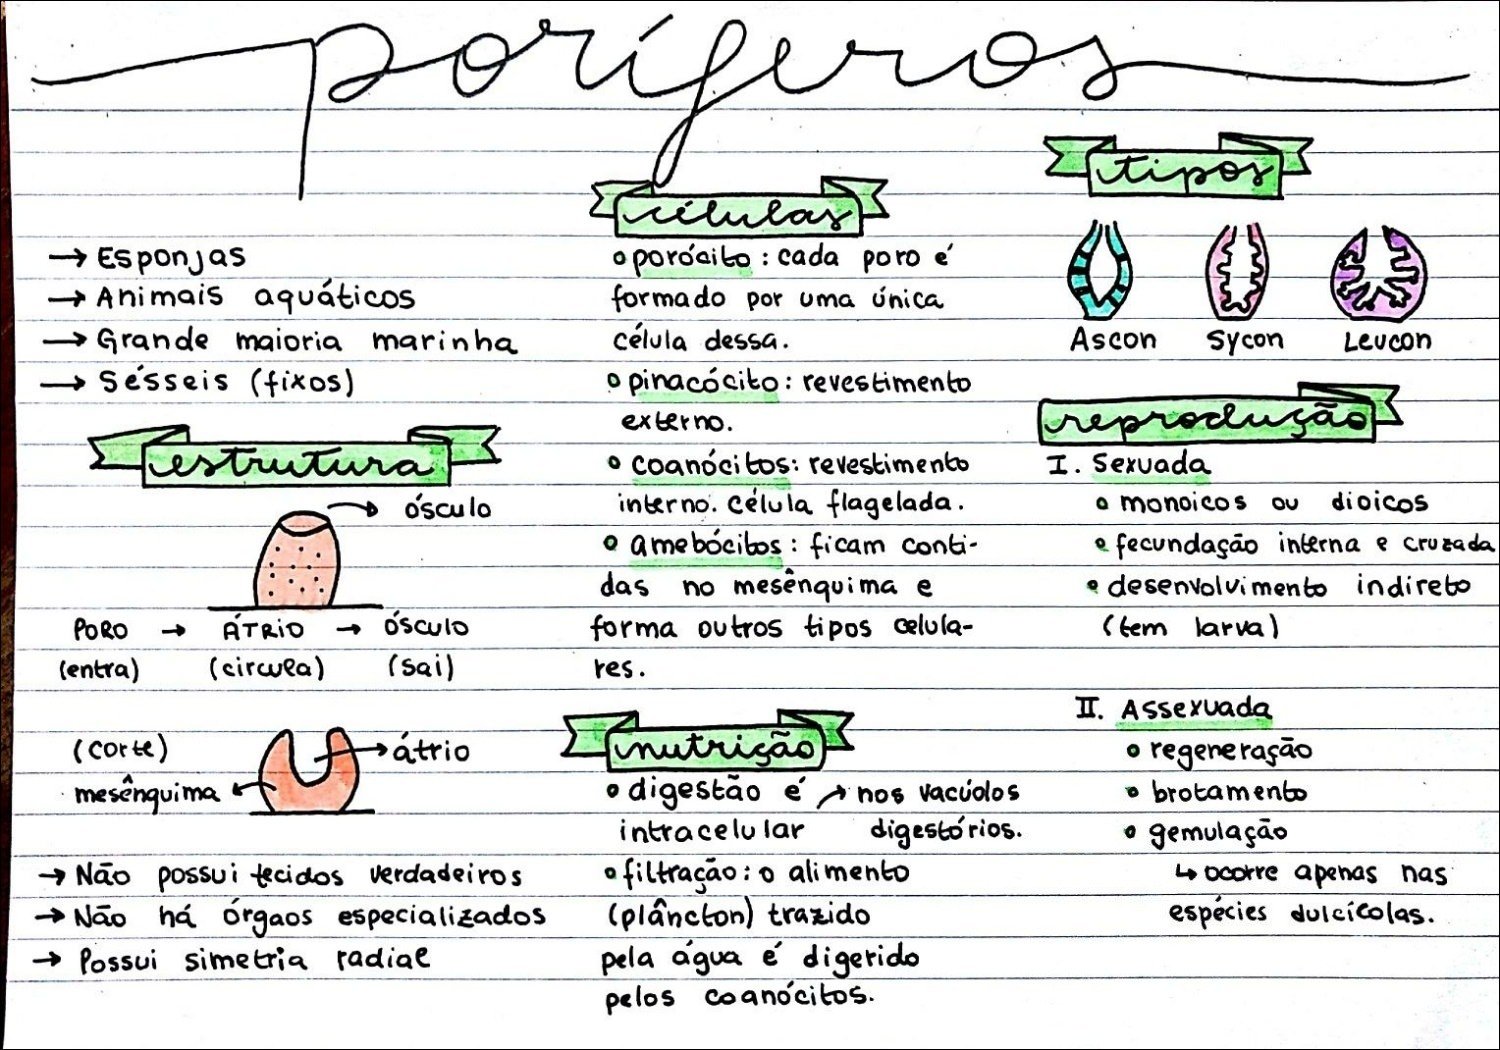 poríferos
→ Esponjas
→ Animais aquáticos
→ Grande maioria marinha
→ Sésseis (fixos)
estrutura
ósculo
PORO → ÁTRIO → ÓSCULO
(entra) (circula) (sai)
(corte)
átrio
mesênquima
→ Não possui tecidos verdadeiros
→ Não há órgãos especializados
→ Possui simetria radial
células
porócito: cada poro é
formado por uma única
célula dessa.
pinacócito: revestimento
externo.
coanócitos: revestimento
interno. célula flagelada.
amebócitos: ficam conti-
das no mesênquima e
forma outros tipos celula-
res.
nutrição
digestão é → nos vacúolos
intracelular digestórios.
filtração: o alimento
(plâncton) trazido
pela água é digerido
pelos coanócitos.
tipos
Ascon Sycon Leucon
reprodução
I. Sexuada
monoicos ou dioicos
fecundação interna e cruzada
desenvolvimento indireto
(tem larva)
II. Assexuada
regeneração
brotamento
gemulação
↳ ocorre apenas nas
espécies dulcícolas.